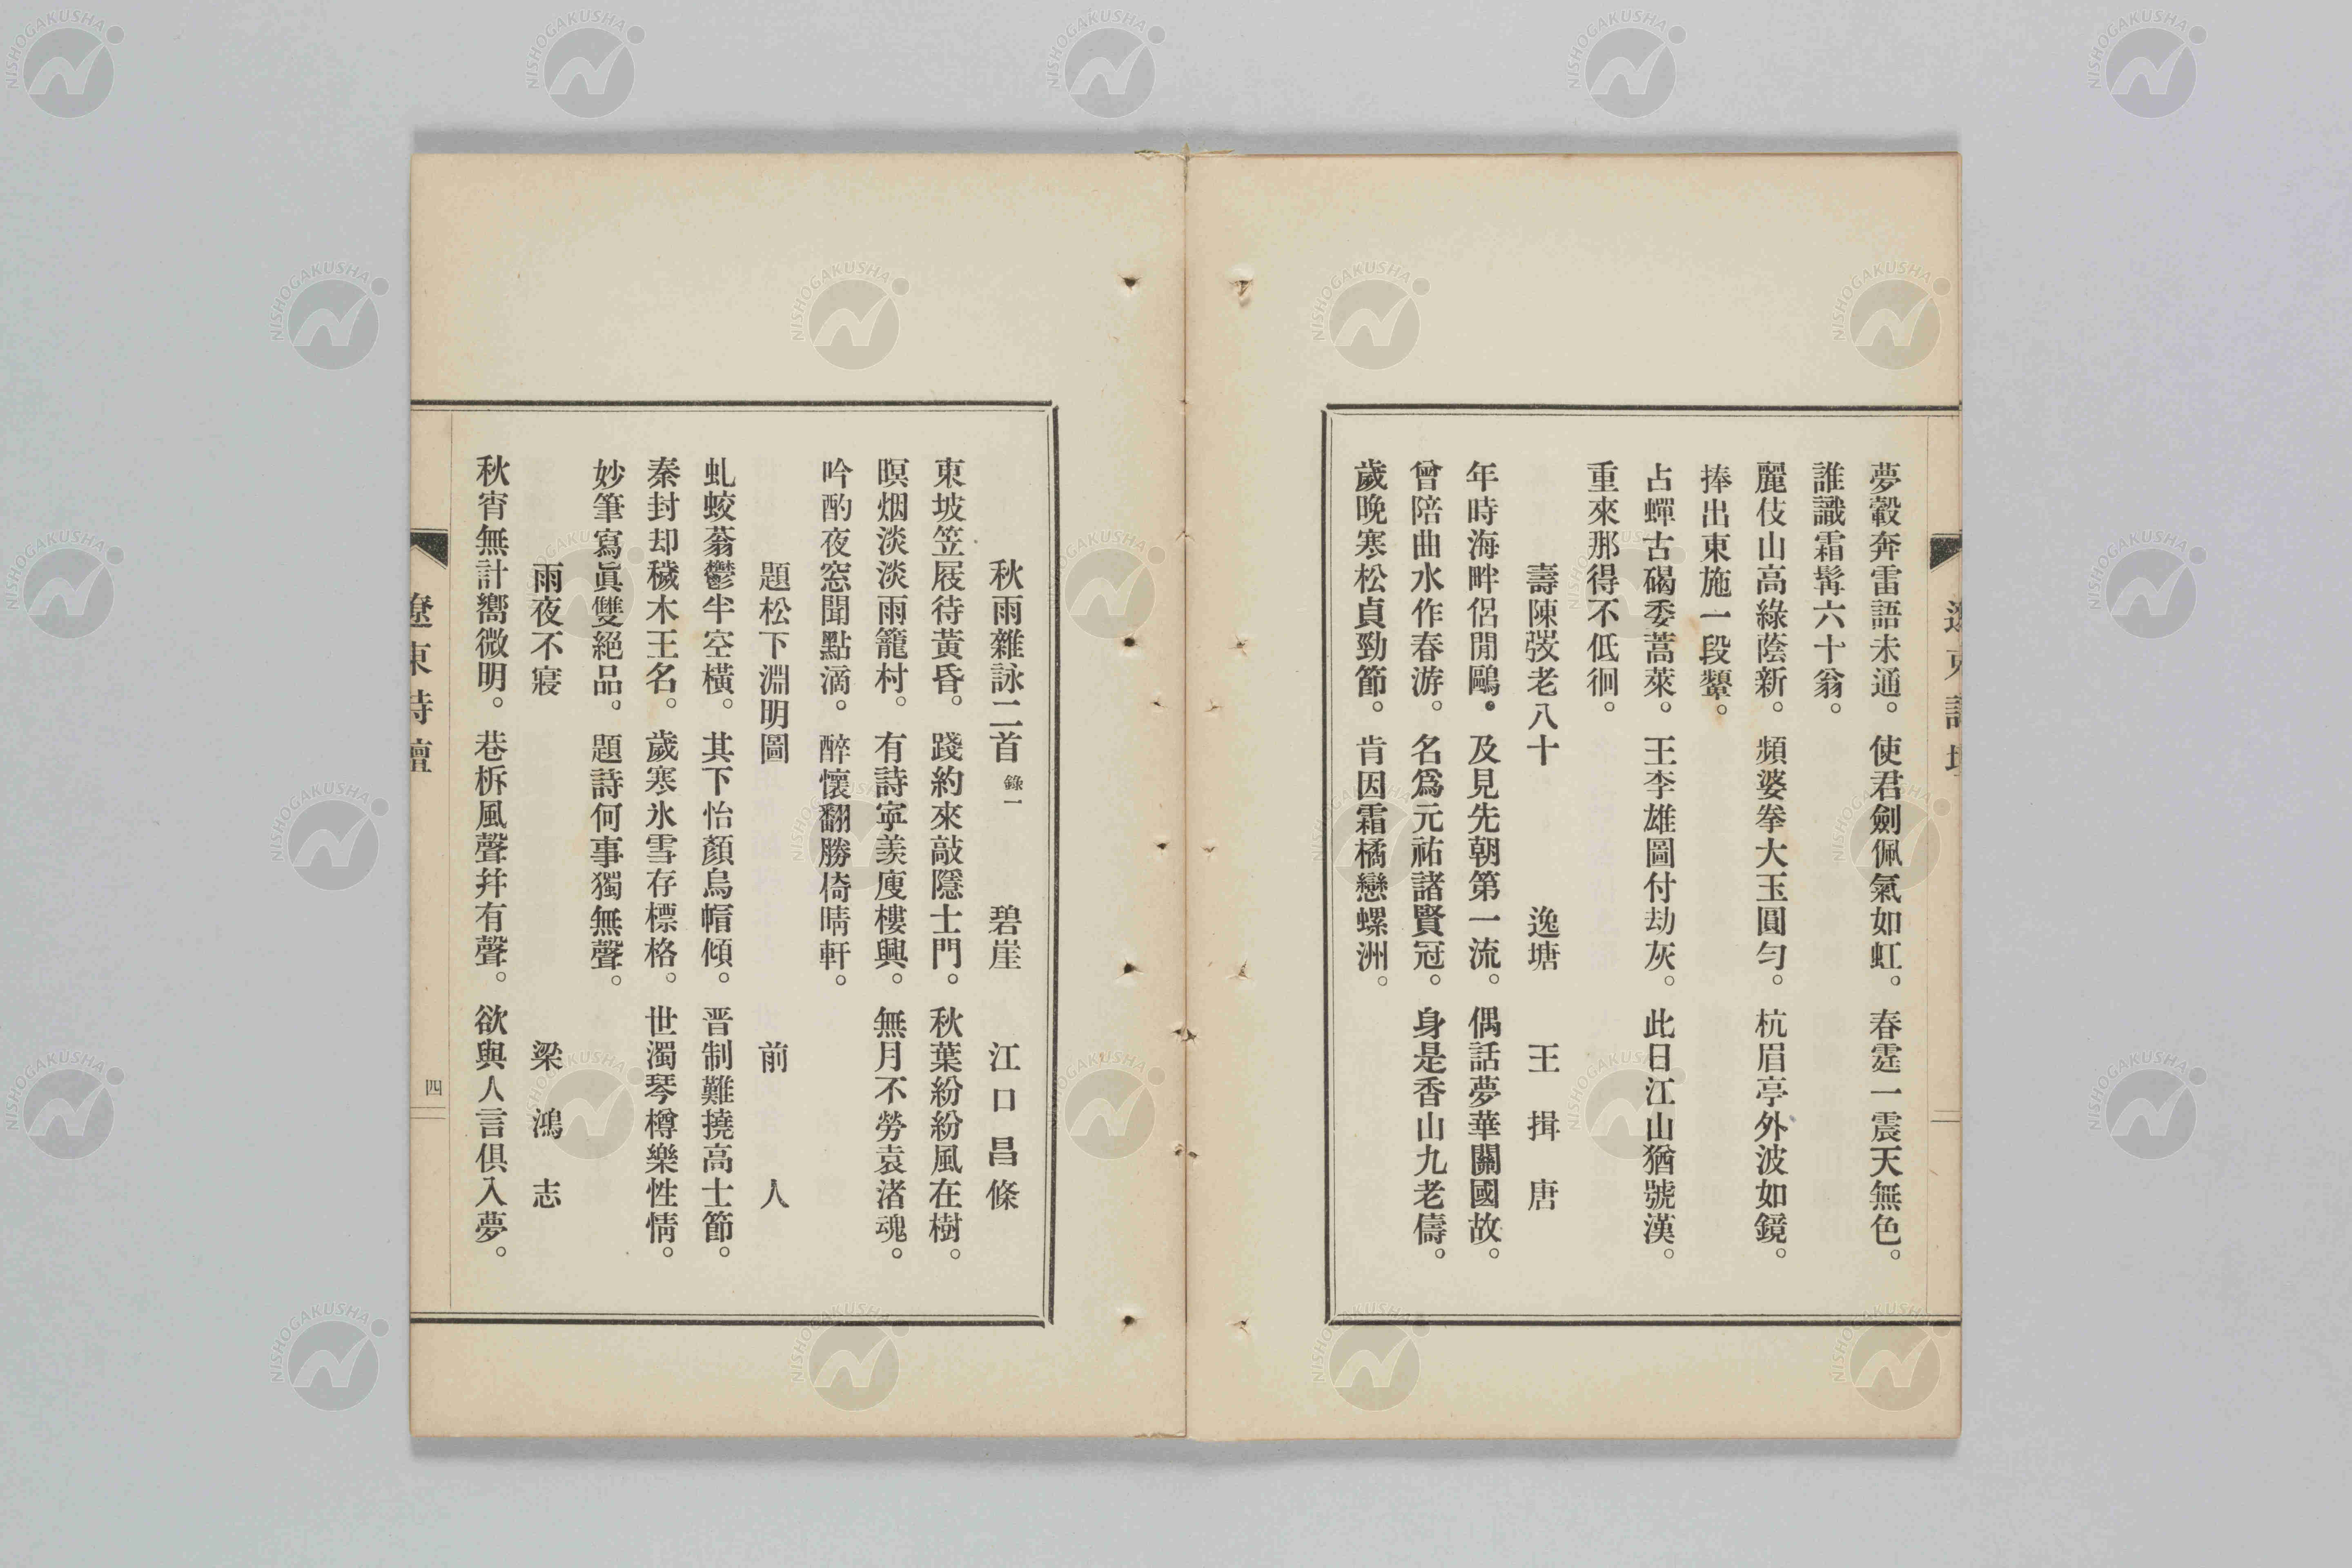 夢轂奔雷語未通。使君劍佩氣如虹。春霆一震天無色。
誰識霜髯六十翁。
麗伎山高綠蔭新。頻婆拳大玉圓勻。杭眉亭外波如鏡。
捧出東施一段顰。
占蟬古碣委蒿萊。王李雄圖付劫灰。此日江山猶號漢。
重來那得不低徊。
壽陳弢老八十　逸塘　王揖唐
年時海畔侶閒鷗。及見先朝第一流。偶話夢華關國故。
曾陪曲水作春游。名爲元祐諸賢冠。身是香山九老儔。
歲晚寒松貞勁節。肯因霜橘戀螺洲。
秋雨雜詠二首 錄一　碧崖　江口昌條
東坡笠屐待黃昏。踐約來敲隱士門。秋葉紛紛風在樹。
暝烟淡淡雨籠村。有詩寧羨庾樓興。無月不勞袁渚魂。
吟酌夜窓聞點滴。醉懷翻勝倚晴軒。
題松下淵明圖　前人
虬蛟蓊鬱半空橫。其下怡顏烏帽傾。晋制難撓高士節。
秦封却穢木王名。歲寒氷雪存標格。世濁琴樽樂性情。
妙筆寫眞雙絕品。題詩何事獨無聲。
雨夜不寢　梁鴻志
秋宵無計嚮微明。巷柝風聲幷有聲。欲與人言俱入夢。
遼東詩壇
四
NISHOGAKUSHA